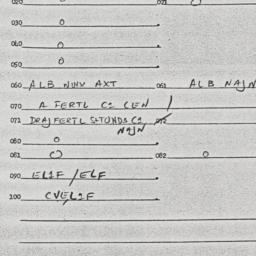 020 0
030 0
040 0
050 0
060 ALB NINV AXT 061 ALB NAJN
070 A FERTL C2 CEN /
071 DRAJ FERTL C2
NAJN
080 0
081 0 082 0
090 ELIF / ELF
100 CVELIF